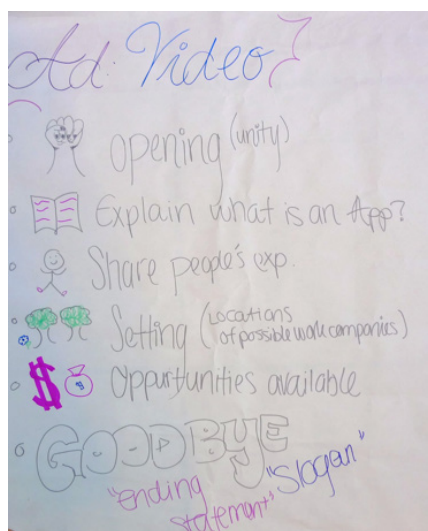 Ad: Video
opening (unity)
Explain what is an App?
Share people's exp.
Setting (Locations
of possible work companies)
$ Oppurtunities available
GOODBYE
"ending
statement" "slogan"